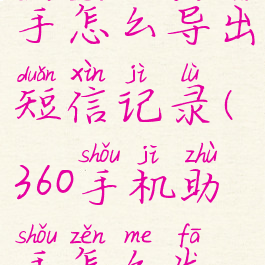 手怎么导出
duǎn xìn jì lù
短信记录(
shǒu jī zhù
360手机助
shǒu zěn me fā
手怎么发